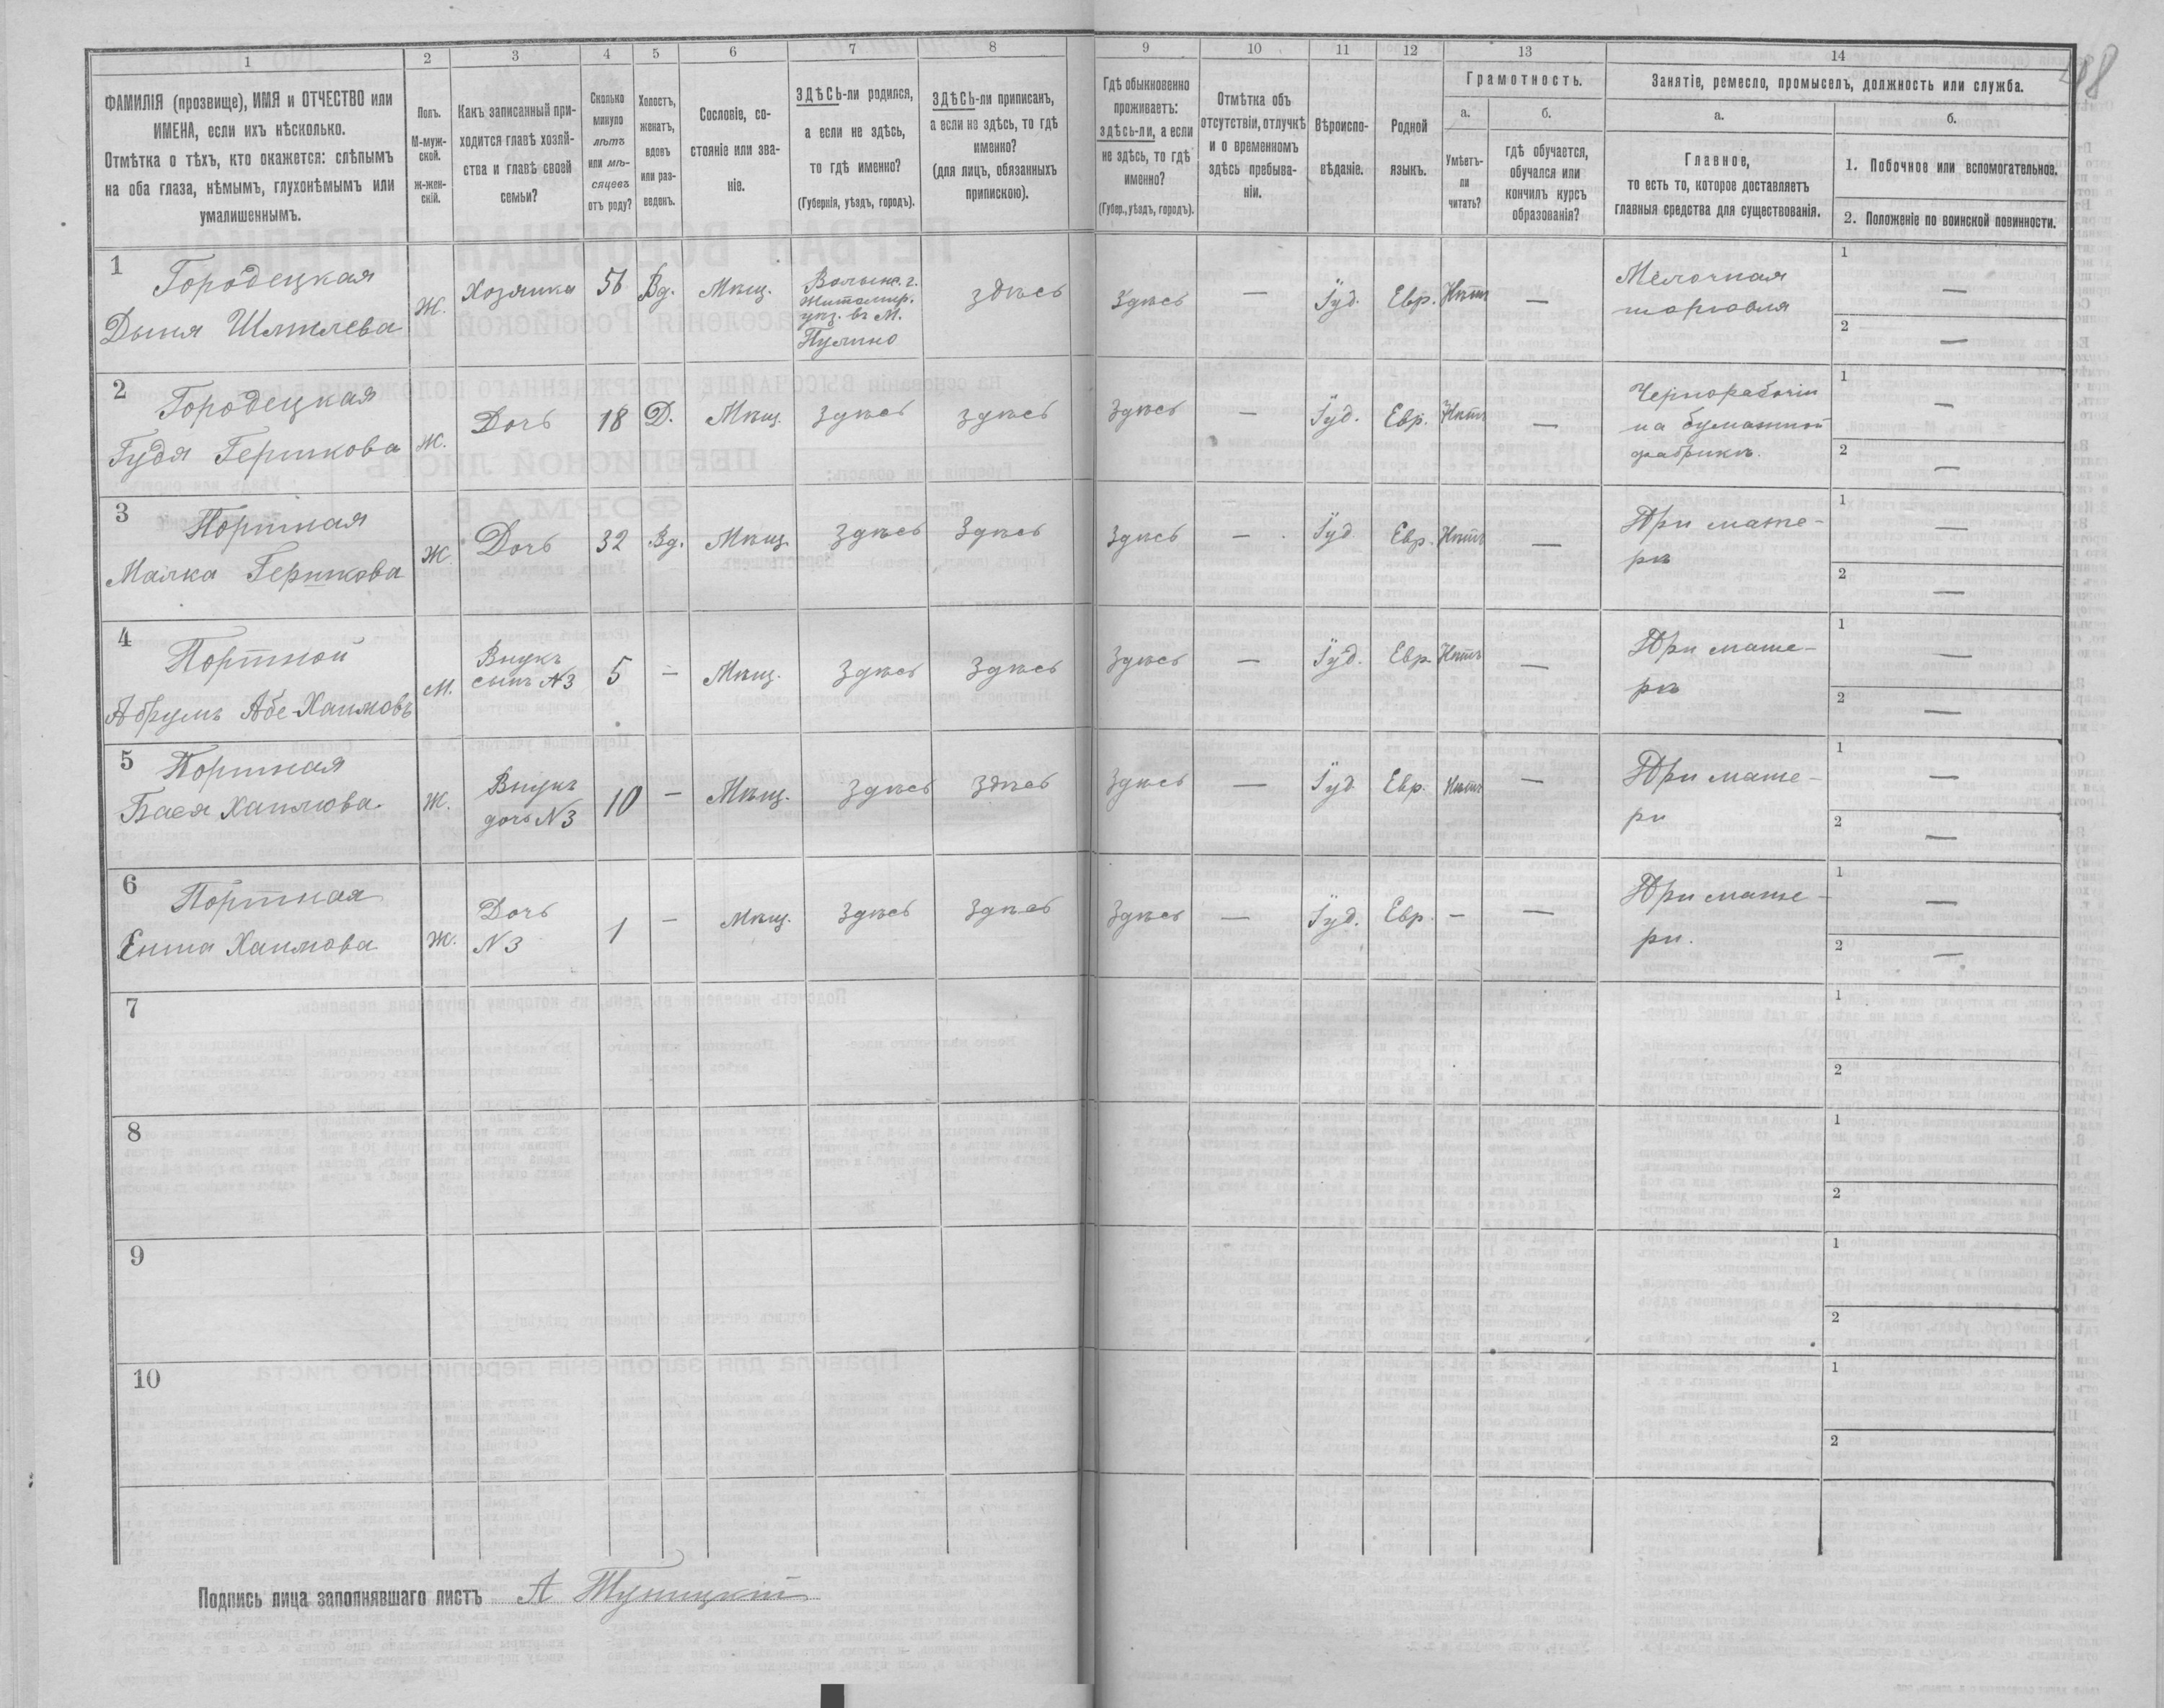 1 2 3 4 5 6 7 8 9 10 11 12 13 14
88
ФАМИЛІЯ (прозвище), ИМЯ и ОТЧЕСТВО или
ИМЕНА, если ихъ нѣсколько.
Отмѣтка о тѣхъ, кто окажется: слѣпымъ
на оба глаза, нѣмымъ, глухонѣмымъ или
умалишеннымъ.
Полъ.
М-муж-
ской.
Ж-жен-
скій.
Какъ записанный при-
ходится главѣ хозяй-
ства и главѣ своей
семьи?
Сколько
минуло
лѣтъ
или мѣ-
сяцевъ
отъ роду?
Холостъ,
женатъ,
вдовъ
или раз-
веденъ.
Сословіе, со-
стояніе или зва-
ніе.
ЗДѢСЬ-ли родился,
а если не здѣсь,
то гдѣ именно?
(Губернія, уѣздъ, городъ).
ЗДѢСЬ-ли приписанъ,
а если не здѣсь, то гдѣ
именно?
(для лицъ, обязанныхъ
припискою).
Гдѣ обыкновенно
проживаетъ:
здѣсь-ли, а если
не здѣсь, то гдѣ
именно?
(Губер., уѣздъ, городъ).
Отмѣтка объ
отсутствіи, отлучкѣ
и о временномъ
здѣсь пребыва-
ніи.
Вѣроиспо-
вѣданіе.
Родной
языкъ.
Грамотность.
а.
Умѣетъ-
ли
читать?
б.
гдѣ обучается,
обучался или
кончилъ курсъ
образованія?
Занятіе, ремесло, промыселъ, должность или служба.
а.
Главное,
то есть то, которое доставляетъ
главныя средства для существованія.
б.
1. Побочное или вспомогательное.
2. Положеніе по воинской повинности.
1
Городецкая
Дыня Шмилева
Ж.
Хозяйка
56
Вд.
Мѣщ.
Волынс. г.
Житомир.
уѣз. въ М.
Пулино
здѣсь
Здѣсь
—
Іуд.
Евр.
Нѣтъ
—
Мелочная
торговля
1 —
2 —
2
Городецкая
Гудя Гершкова
Ж.
Дочь
18
Д.
Мѣщ.
Здѣсь
здѣсь
Здѣсь
—
Іуд.
Евр.
Нѣтъ
—
Чернорабочій
на бумажной
фабрикѣ.
1 —
2 —
3
Портная
Малка Гершкова
Ж.
Дочь
32
Вд.
Мѣщ.
Здѣсь
Здѣсь
Здѣсь
—
Іуд.
Евр.
Нѣтъ
—
При мате-
рѣ
1 —
2 —
4
Портной
Абрумъ Абе-Хаимовъ
М.
Внукъ
сынъ №3
5
—
Мѣщ.
Здѣсь
Здѣсь
Здѣсь
—
Іуд.
Евр.
Нѣтъ
—
При мате-
рѣ
1 —
2 —
5
Портная
Бася Хаимова
Ж.
Внукъ
дочь №3
10
—
Мѣщ.
Здѣсь
Здѣсь
Здѣсь
—
Іуд.
Евр.
Нѣтъ
—
При мате-
ри
1 —
2 —
6
Портная
Ента Хаимова
Ж.
Дочь
№3
1
—
Мѣщ.
Здѣсь
Здѣсь
Здѣсь
—
Іуд.
Евр.
—
—
При мате-
ри.
1 —
2 —
7
1
2
8
1
2
9
1
2
10
1
2
Подпись лица заполнявшаго листъ А Туницкій